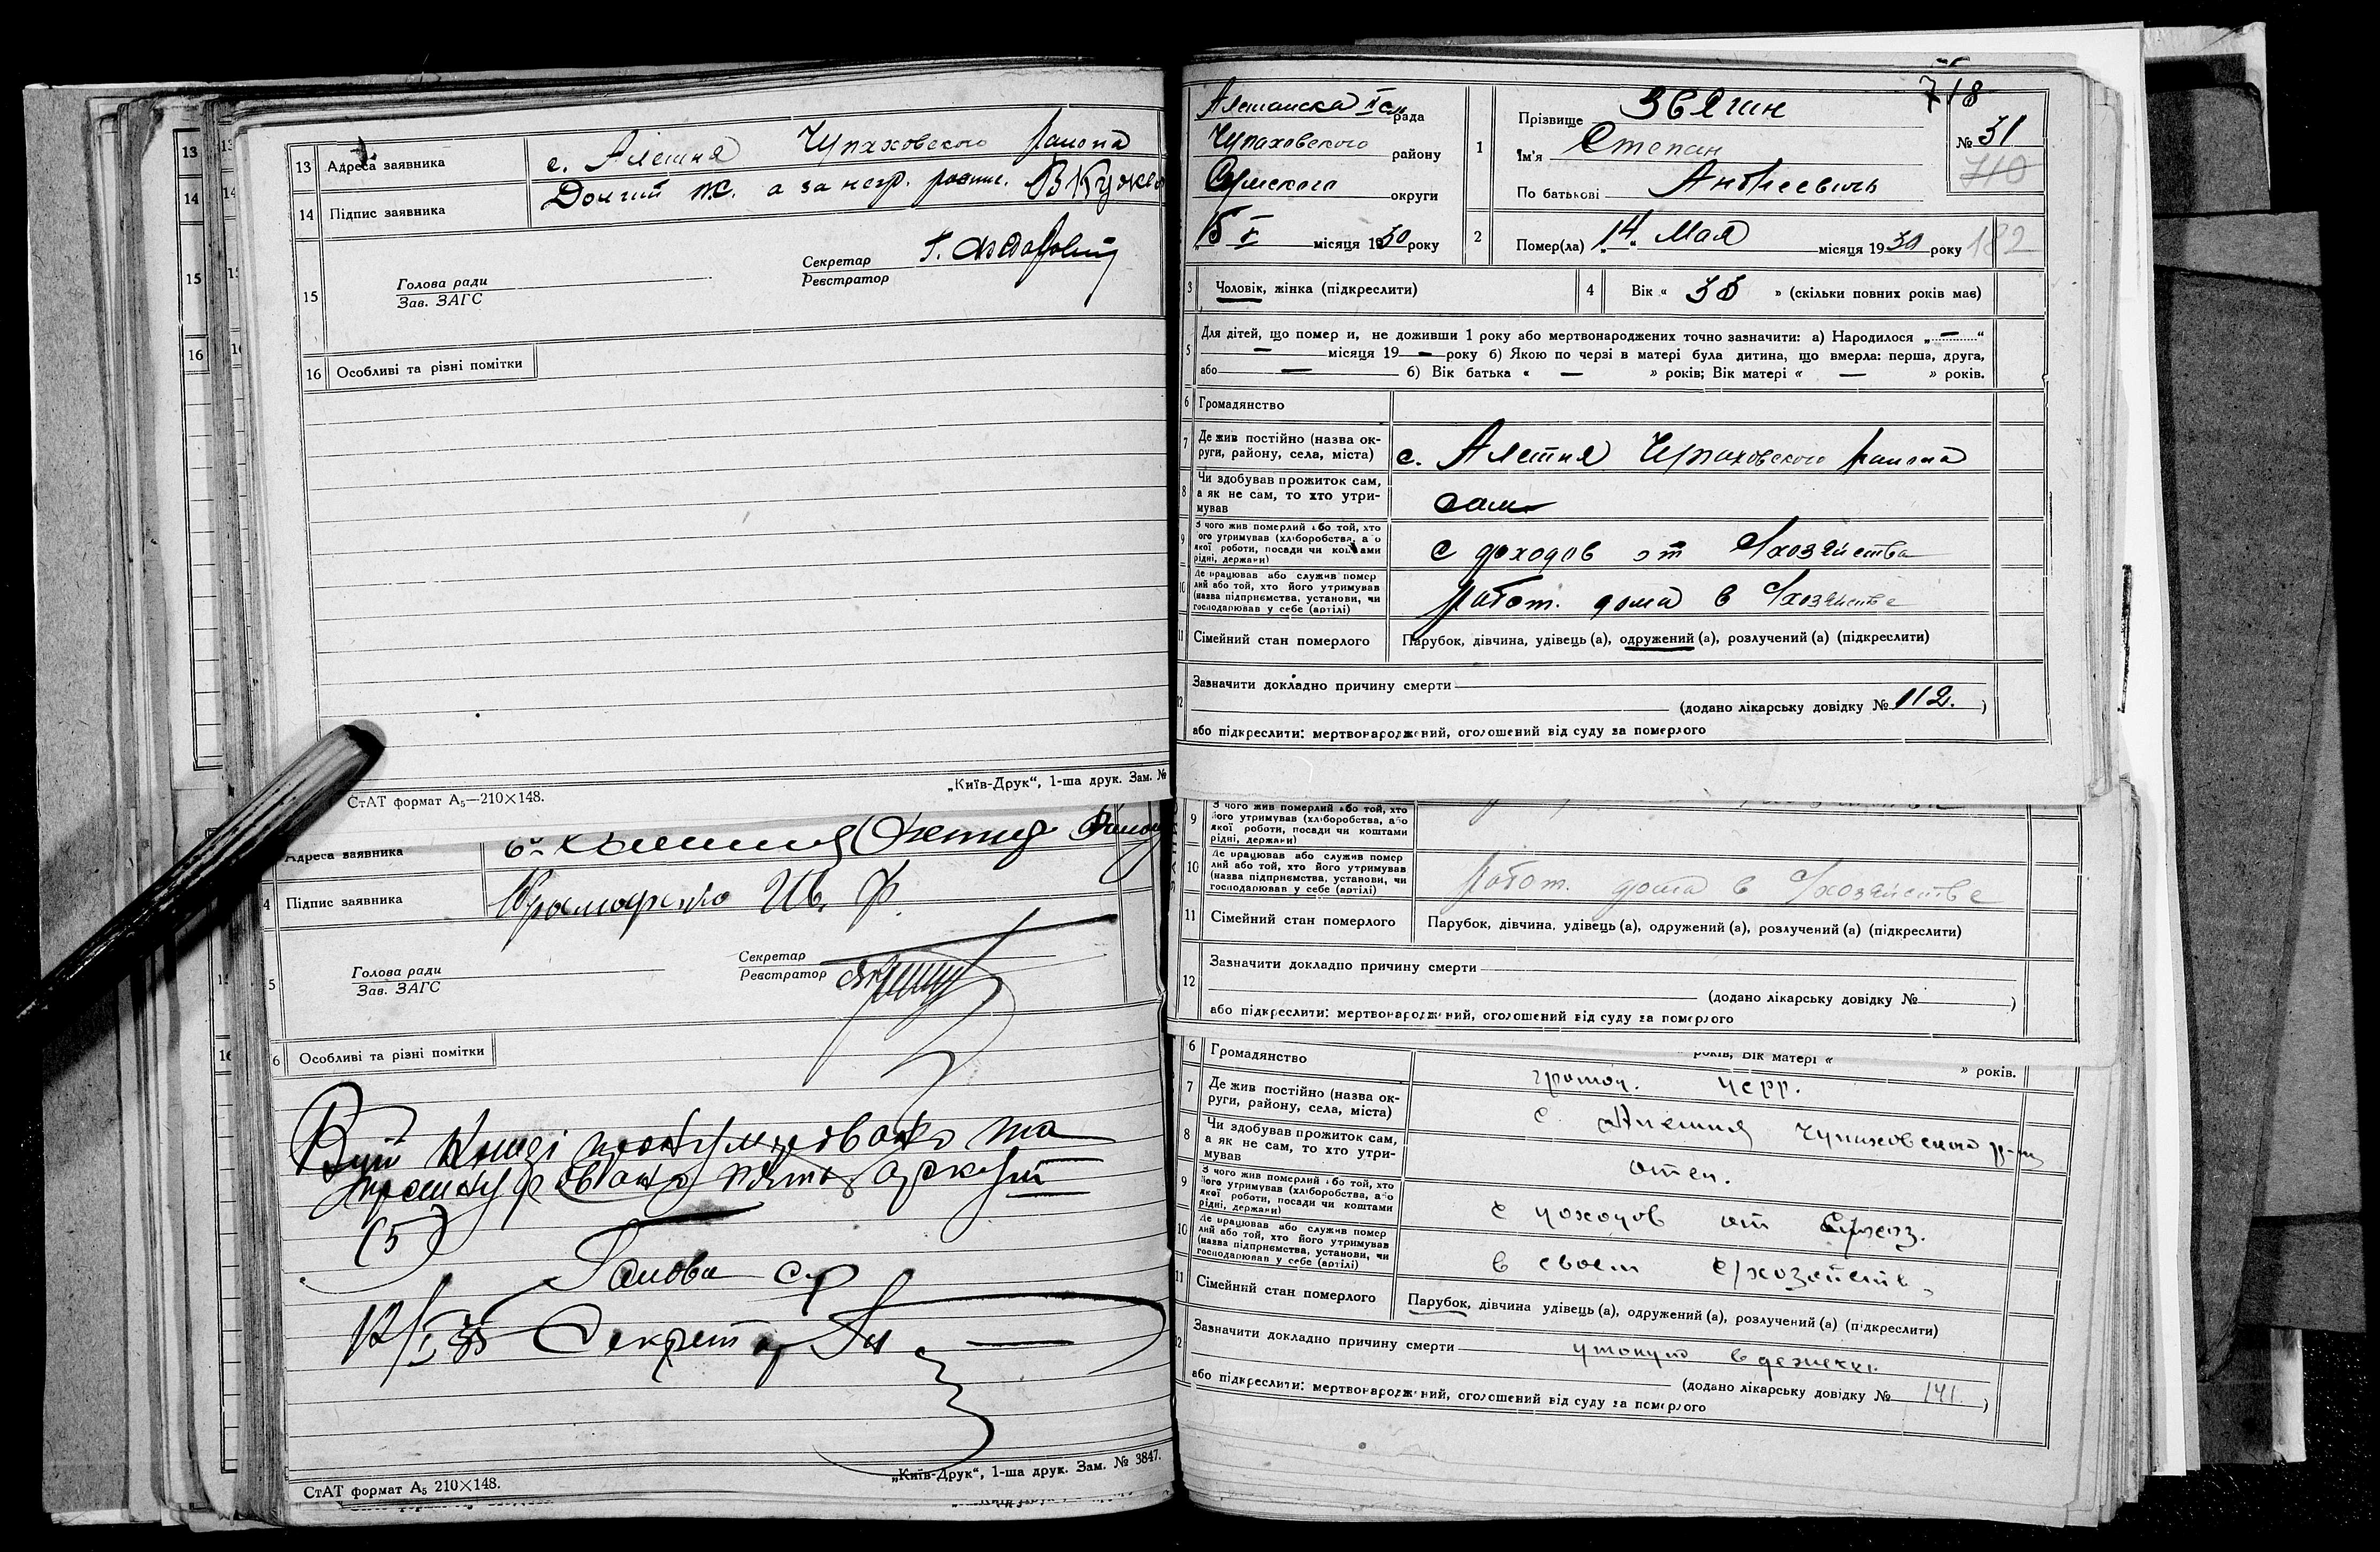 13 Адреса заявника с. Алешня Чупаховского района
14 Підпис заявника Долгий а за негр. роспис.
15 Голова ради
Зав. ЗАГС
Секретар
Реєстратор
16 Особливі та різні помітки
СтАТ формат А₅—210×148.
„Київ-Друк“, 1-ша друк. Зам. №
Адреса заявника
4 Підпис заявника Ив. Ф.
5 Голова ради
Зав. ЗАГС
Секретар
Реєстратор
6 Особливі та різні помітки
В цій книзі пронумеровано та
прошнуровано аркуш
(5)
Голова с/р
12/I 35 Секретар
СтАТ формат А₅ 210×148.
„Київ-Друк“, 1-ша друк. Зам. № 3847.
718
рада
Чупаховского району
Сумского округи
15 V місяця 1930 року
1 Прізвище Звягин
Ім'я Степан
По батькові Андреевичь
№ 31
710
2 Помер(ла) „14“ Мая місяця 1930 року 182
3 Чоловік, жінка (підкреслити)
4 Вік « 38 » (скільки повних років має)
5 Для дітей, що померли, не доживши 1 року або мертвонароджених точно зазначити: а) Народилося „—“
— місяця 19— року б) Якою по черзі в матері була дитина, що вмерла: перша, друга,
або — б) Вік батька « — » років; Вік матері « — » років.
6 Громадянство
7 Де жив постійно (назва ок-
руги, району, села, міста) с. Алешня Чупаховского района
8 Чи здобував прожиток сам,
а як не сам, то хто утри-
мував сам
9 З чого жив померлий або той, хто
його утримував (хліборобства, або
якої роботи, посади чи коштами
рідні, держави) с доходов от с/хозяйства
10 Де працював або служив помер
лий або той, хто його утримував
(назва підприємства, установи, чи
господарював у себе (артілі) работ. дома в с/хозяйстве
11 Сімейний стан померлого Парубок, дівчина, удівець (а), одружений (а), розлучений (а) (підкреслити)
12 Зазначити докладно причину смерти
(додано лікарську довідку № 112.)
або підкреслити: мертвонароджений, оголошений від суду за померлого
9 З чого жив померлий або той, хто
його утримував (хліборобства, або
якої роботи, посади чи коштами
рідні, держави)
10 Де працював або служив помер
лий або той, хто його утримував
(назва підприємства, установи, чи
господарював у себе (артілі) работ. дома в с/хозяйстве
11 Сімейний стан померлого Парубок, дівчина, удівець (а), одружений (а), розлучений (а) (підкреслити)
12 Зазначити докладно причину смерти
(додано лікарську довідку № )
або підкреслити: мертвонароджений, оголошений від суду за померлого
років; Вік матері « » років.
6 Громадянство
7 Де жив постійно (назва ок-
руги, району, села, міста) с. Алешня Чупаховского р-на
8 Чи здобував прожиток сам,
а як не сам, то хто утри-
мував отец.
9 З чого жив померлий або той, хто
його утримував (хліборобства, або
якої роботи, посади чи коштами
рідні, держави) с доходов от с/хоз.
10 Де працював або служив помер
лий або той, хто його утримував
(назва підприємства, установи, чи
господарював у себе (артілі) в своем с/хозяйстве
11 Сімейний стан померлого Парубок, дівчина удівець (а), одружений (а), розлучений (а) (підкреслити)
12 Зазначити докладно причину смерти утонул
(додано лікарську довідку № 141.)
або підкреслити: мертвонароджений, оголошений від суду за померлого